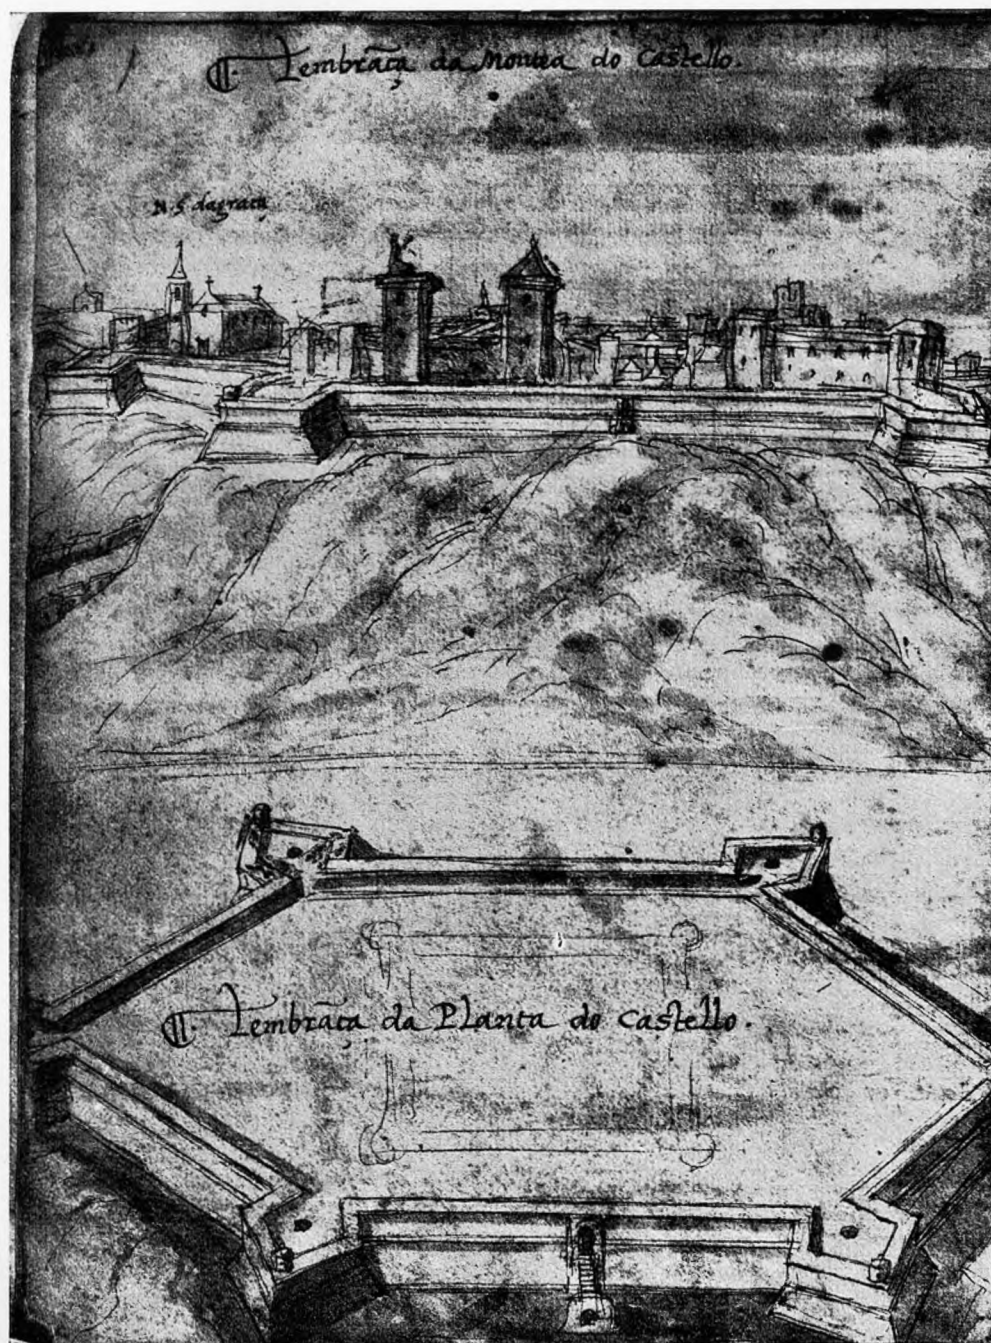 Lembrãça da Montea do Castello.
N. S. dagraça
Lembrãça da Planta do Castello.